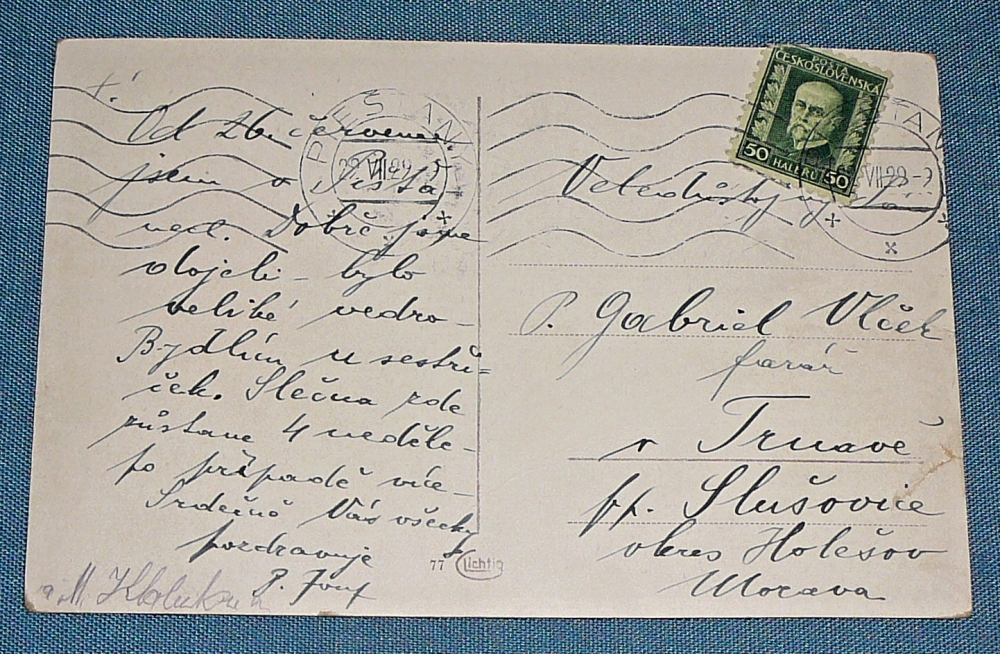 Od 26. července
jsem v Pišťa-
nech. Dobře jsme
dojeli – bylo
veliké vedro –
Bydlím u sestři-
ček. Slečna zde
zůstane 4 neděle –
po případě více –
Srdečně Vás všecky
pozdravuje
P. Josef
77 Lichtig
POSTA
ČESKOSLOVENSKÁ
50 HALÉRŮ 50
PIEŠŤANY
VII 29
Veledůstojný pán
P. Gabriel Vlček
farář
v Trnavě
pp. Slušovice
okres Holešov
Morava